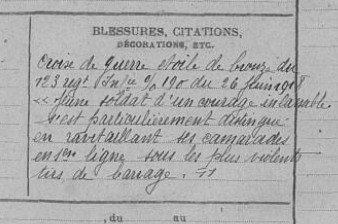 BLESSURES, CITATIONS,
DÉCORATIONS, ETC.
Croix de guerre étoile de bronze du
123 regt Inf ie O/ 190 du 26 juin 1918
« Jeune soldat d'un courage inlassable
s'est particulièrement distingué
en ravitaillant ses camarades
en 1ère ligne sous les plus violents
tirs de barrage. »
du au